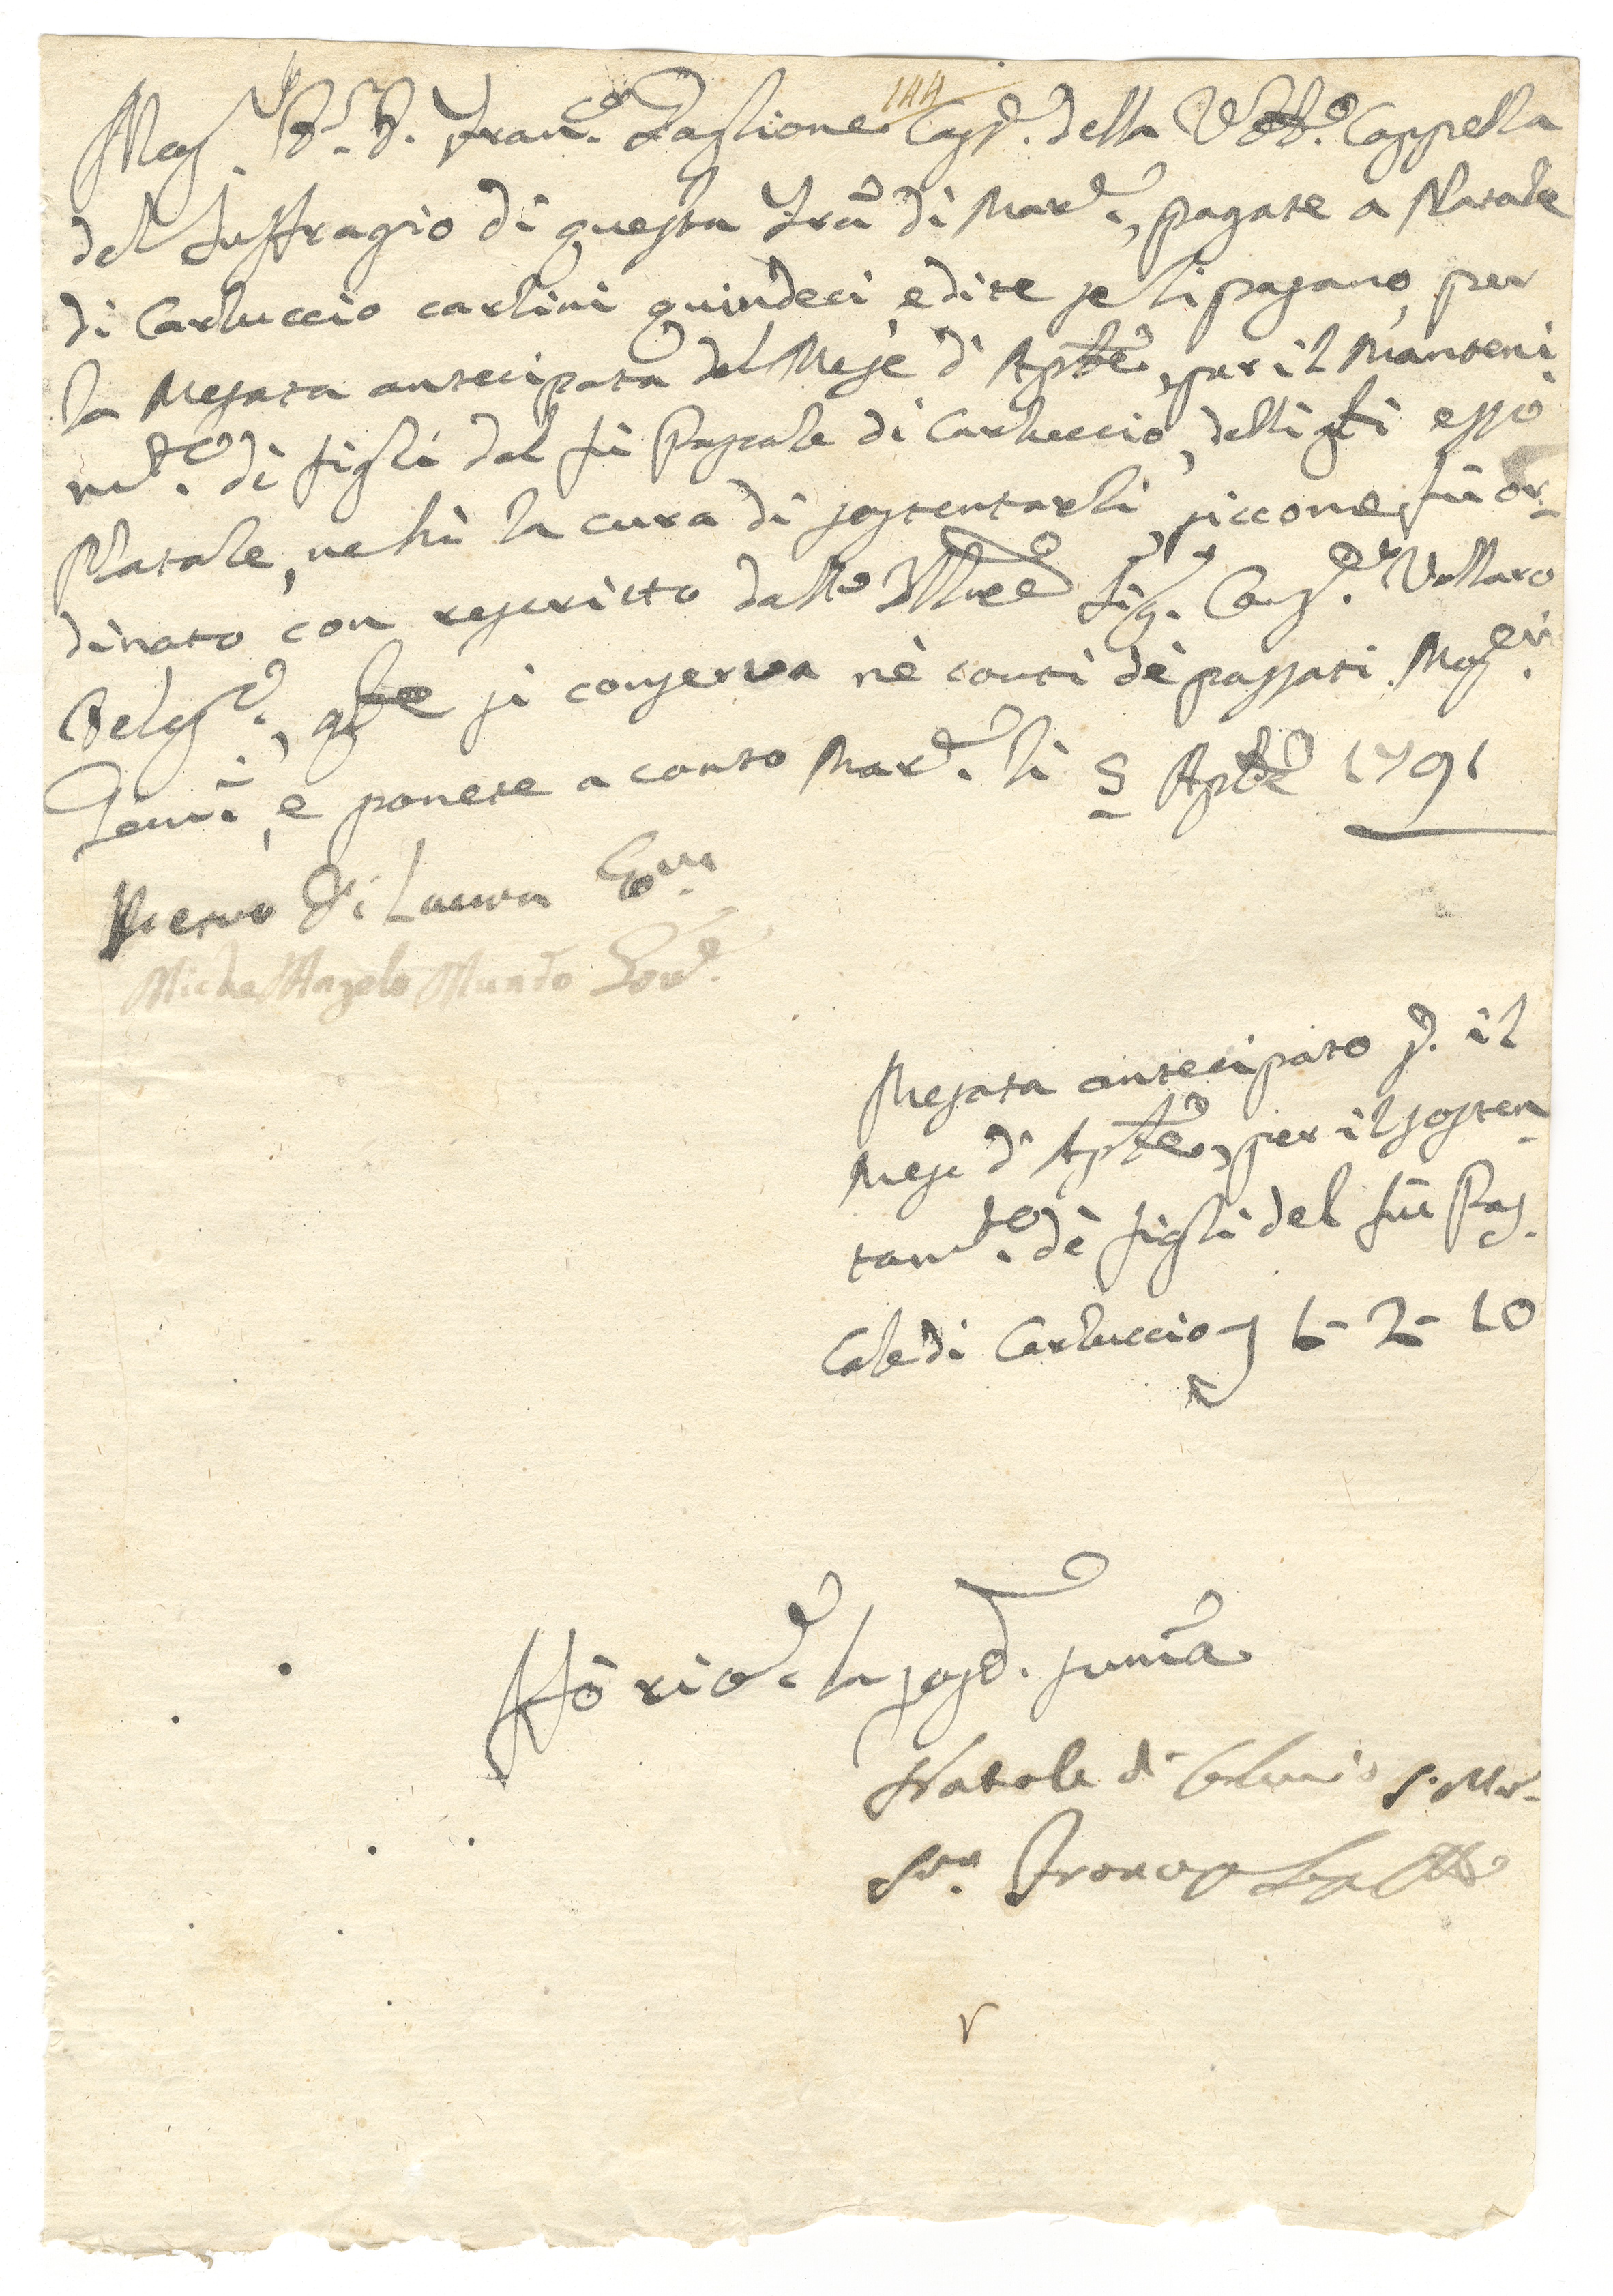 144
Mag.co D.r D. Fran.co Taglione Cass.e della V. Cappella
del Suffragio di questa Trã di Mar.e, pagate a Natale
di Carluccio carlini quindeci, e dite se li pagano, per
la Mesata antecipata del Mese d' Aple, per il Manteni
m.to di figli del fù Pascale di Carluccio, delli qli esso
Natale, ne hà la cura di sostentarli, siccome fù or-
dinato con rescritto dall' Illre Sig. Cons.re Vollaro
Deleg.o, qle si conserva nè conti de passati Mag.ci
e ponete a conto Mar.e li 5 Aple 1791
di Laura
Michel Angelo Mundo Gov.e
Mesata antecipato p. il
Mese d' Aple, per il sosten
tam.to dè figli del fù Pas
cale di Carluccio 1- 2- 10
Hò ric.o la sop.a summa
Natale di